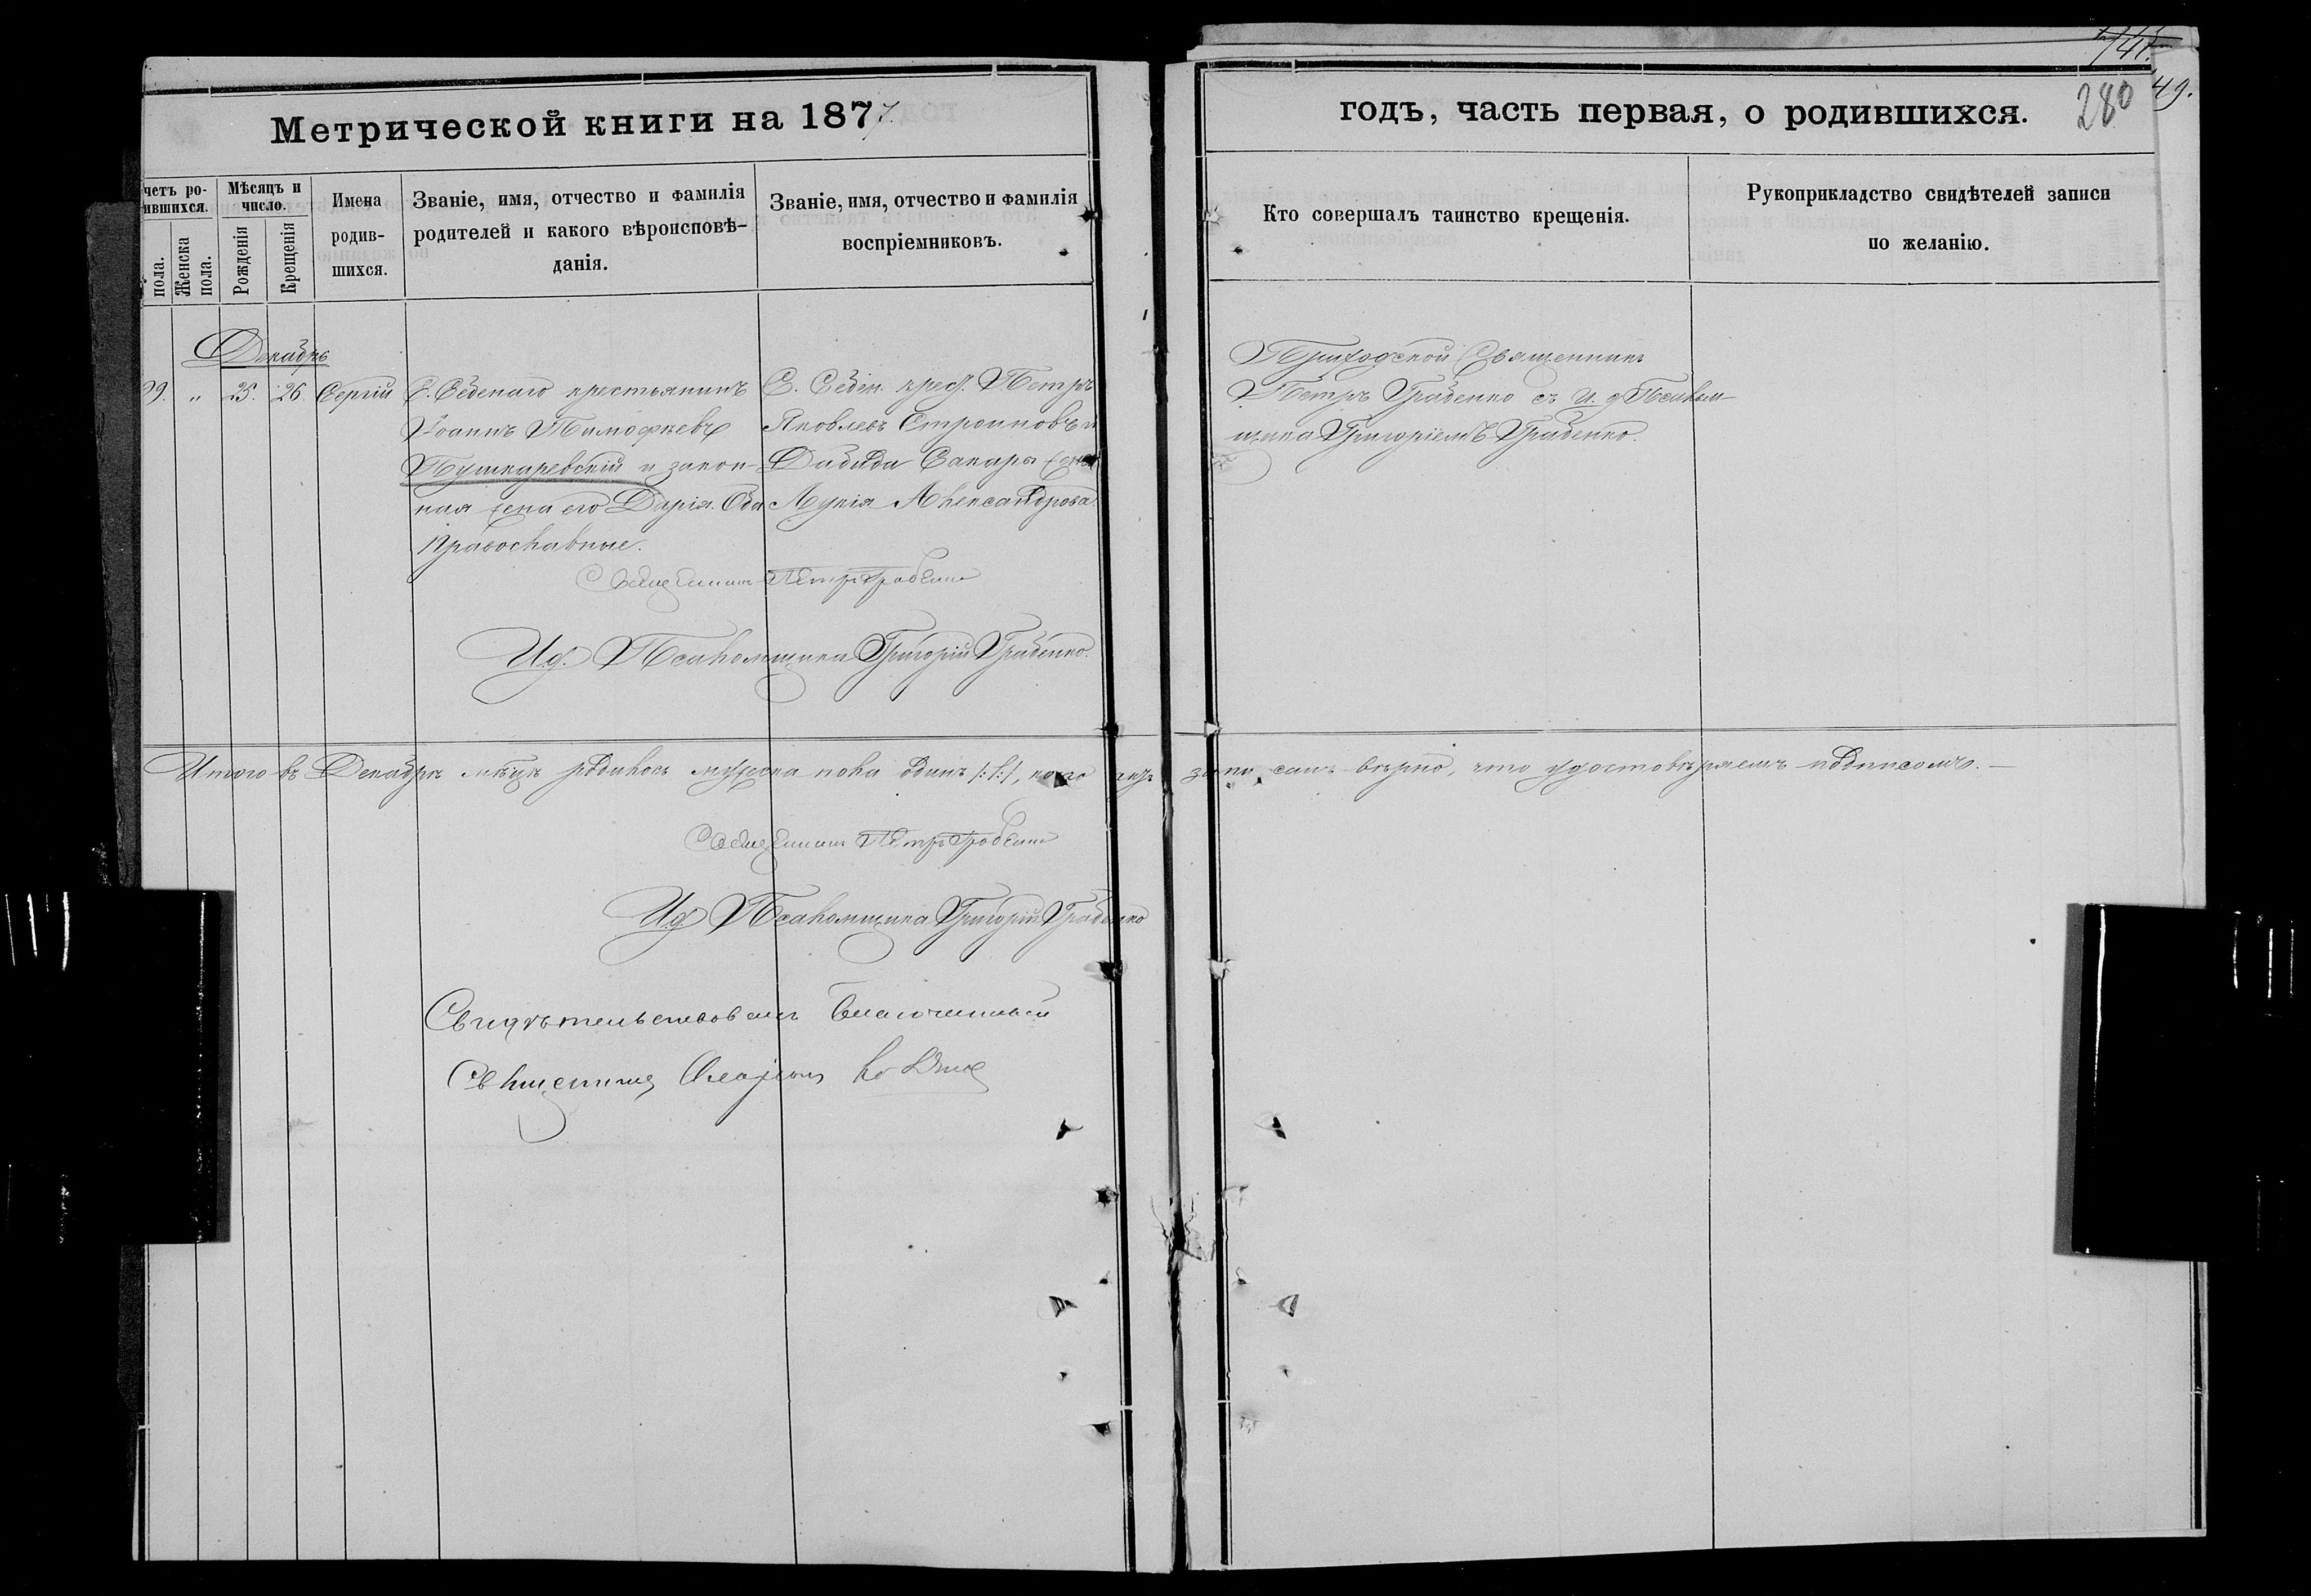 141.
49.
280
Метрической книги на 1877.
годъ, часть первая, о родившихся.
четъ ро-
ившихся.
пола.
Женска
пола.
Мѣсяцъ и
число.
Рожденія
Крещенія
Имена
родив-
шихся.
Званіе, имя, отчество и фамилія
родителей и какого вѣроисповѣ-
данія.
Званіе, имя, отчество и фамилія
воспріемниковъ.
Кто совершалъ таинство крещенія.
Рукоприкладство свидѣтелей записи
по желанію.
Декабрь
99. " 25. 26. Сергій
крестьянинъ
Іоаннъ Тимофѣевъ
Пушкаревскій и закон-
ная жена его Дарія. Оба
православные.
крест. Петръ
Яковлевъ и
Давида жена
Лукія Александрова.
Приходской Священникъ
Петръ Грабенко съ И. д. Псалом-
щика Григоріемъ Грабенко.
Священникъ Петръ Грабенко
И.д. Псаломщика Григорій Грабенко.
Итого въ Декабрѣ мѣсяцѣ родилось мужеска пола одинъ /:1:/, записанъ вѣрно, что удостовѣряемъ подписомъ. —
Священникъ Петръ Грабенко
И.д. Псаломщика Григорій Грабенко
Свидѣтельствовалъ Благочинный
Священникъ